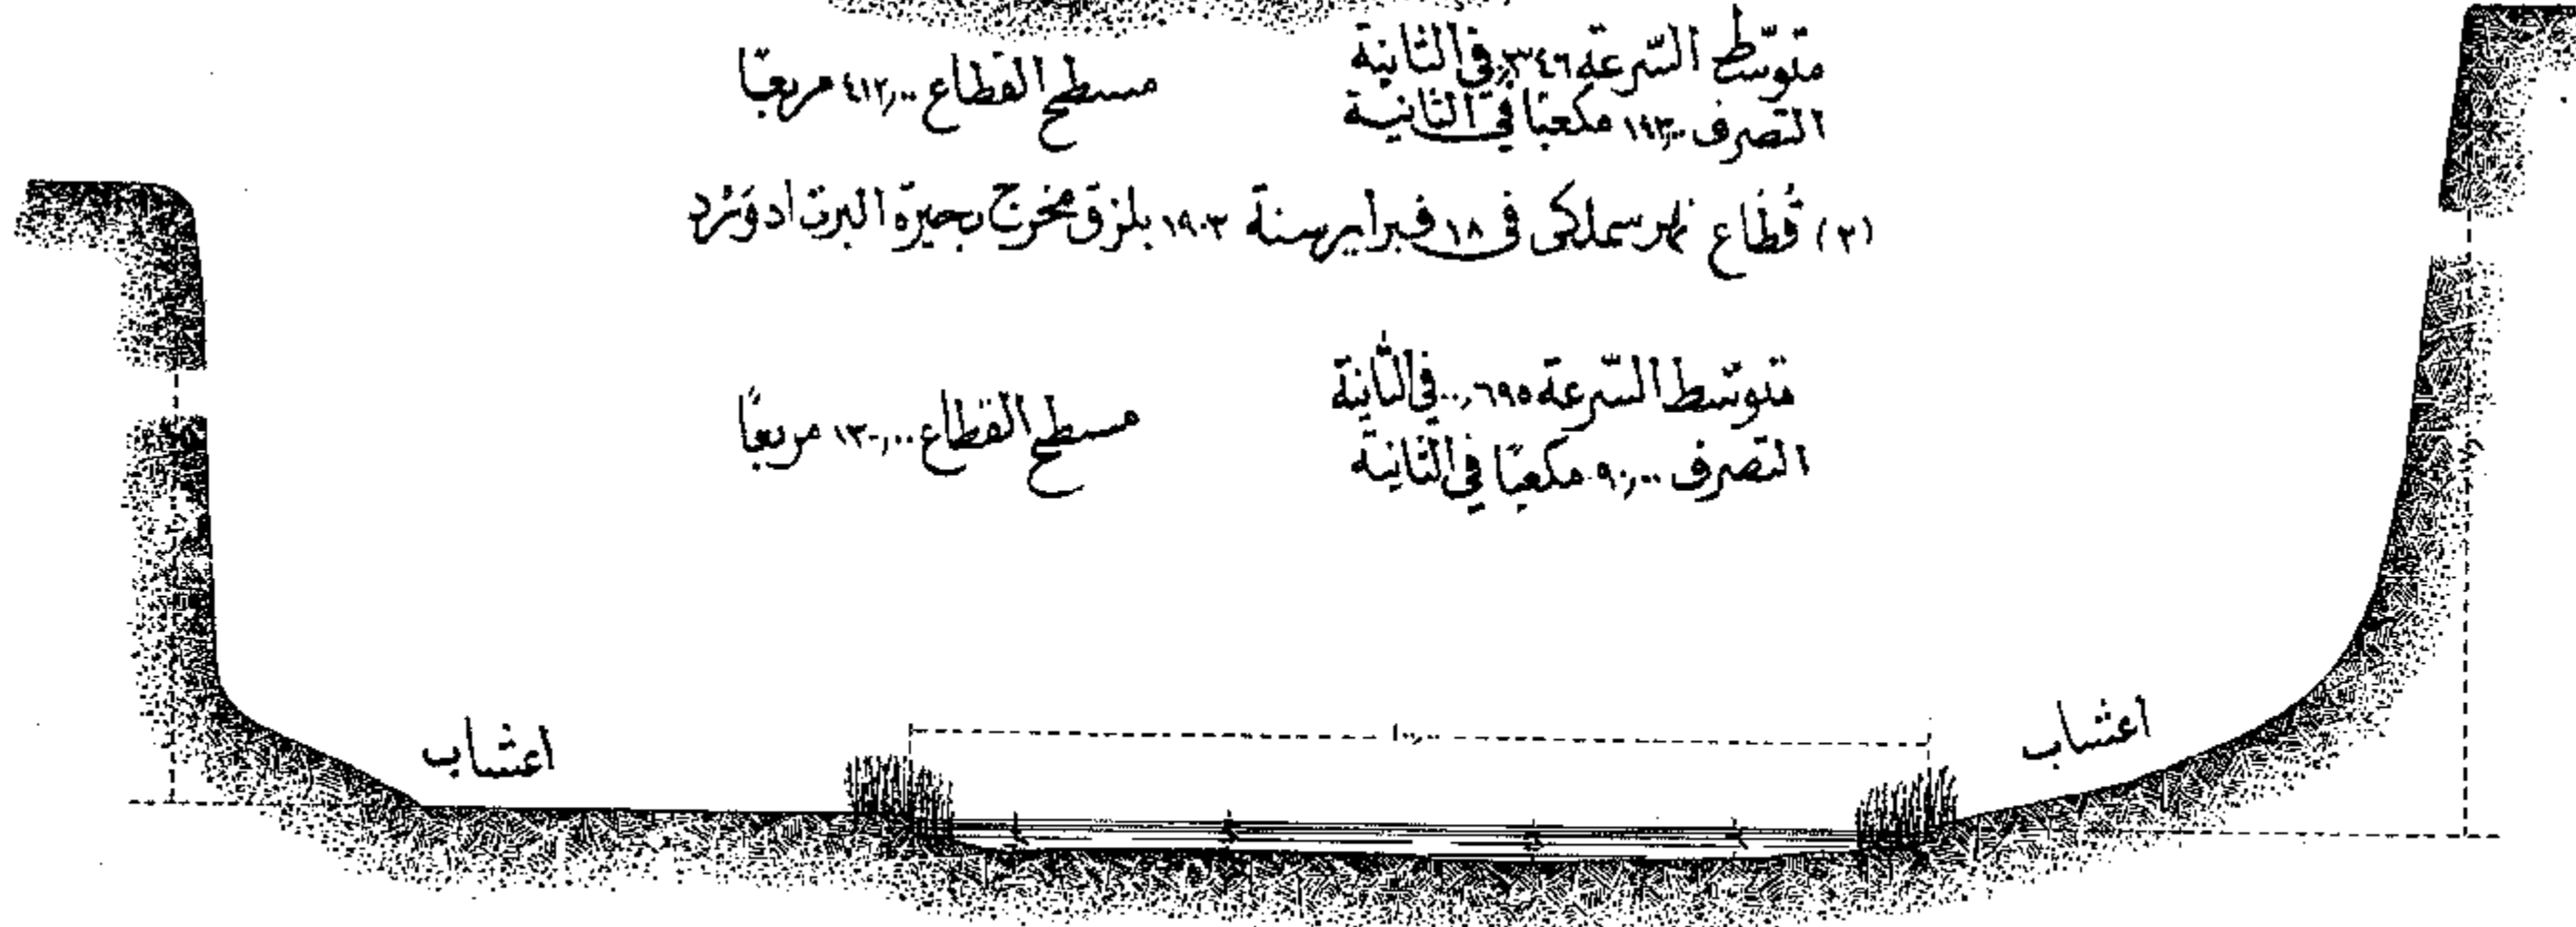 متوسّط السّرعة ٣٤٦ر. في الثانية
التصرف ١٤٣ر.. مكعبًا في الثانية
مسطح القطاع ٤١٢ر.. مربعًا
(٢) قطاع نهر سملكى فى ١٨ فبراير سنة ١٩٠٣ بلزق مخرج بحيرة البرت ادورد
متوسّط السّرعة ٦٩٥ر.. في الثانية
التصرف ٩٠ر.. مكعبًا في الثانية
مسطح القطاع ١٣٠ر.. مربعًا
١٠٠ر..
اعشاب
اعشاب